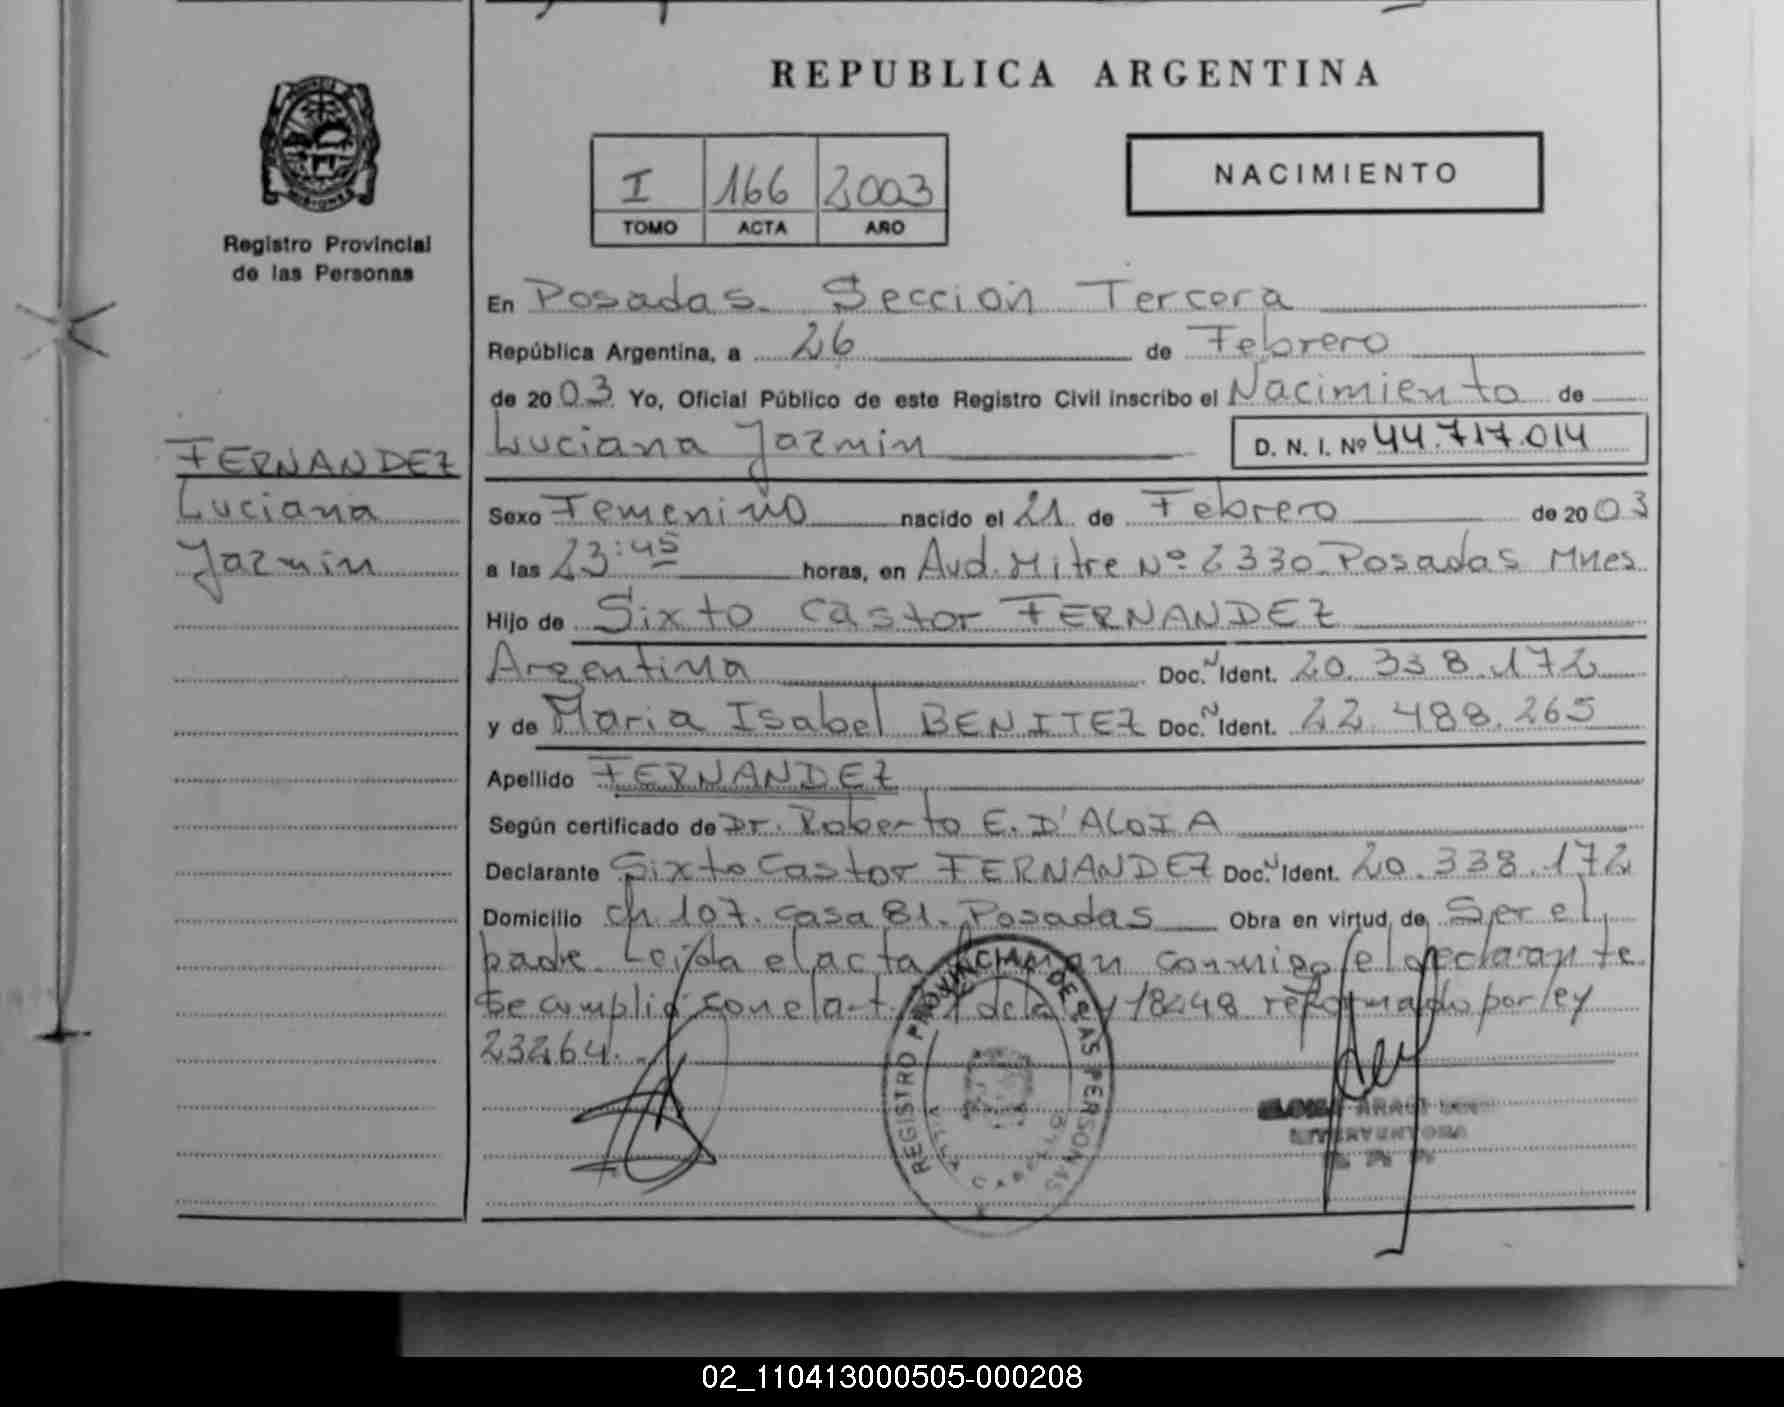 REPUBLICA ARGENTINA
NACIMIENTO
I 166 2003
TOMO ACTA AÑO
Registro Provincial
de las Personas
En Posadas. Sección Tercera
República Argentina, a 26 de Febrero
de 2003 Yo, Oficial Público de este Registro Civil inscribo el Nacimiento de
Luciana Jazmin D. N. I. Nº 44.717.014
FERNANDEZ
Luciana
Jazmin
Sexo Femenino nacido el 21 de Febrero de 2003
a las 23:45 horas, en Avd. Mitre Nº 2330 Posadas Mnes.
Hijo de Sixto Castor FERNANDEZ
Argentina Doc. N Ident. 20.338.172
y de Maria Isabel BENITEZ Doc. N Ident. 22.488.265
Apellido FERNANDEZ
Según certificado de Dr. Roberto E. D'ALOIA
Declarante Sixto Castor FERNANDEZ Doc. N Ident. 20.338.172
Domicilio ch 107. casa 81. Posadas Obra en virtud de Ser el
padre. Leida el acta firman conmigo el declarante
Se cumplió con el art. de la ley 18248 reformado por ley
23264.
REGISTRO PROVINCIAL DE LAS PERSONAS
INTERVENTORA
02_110413000505-000208